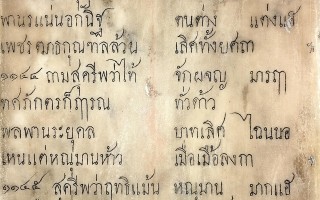 พานรแน่นอกันิฐ ตนต่าง แต่งแฮ
เพชร กุณฑิลล้วน เลิศทั้งยศฤๅ
๑๑๔๔ ถามสุครีพว่าไท้ จักผจญ มารฤๅ
ทศภักตรก็ฤๅรณ ทั่วด้าว
พลพานระยุคล บาทเลิศ ไฉนนอ
เหนแต่หณุมานห้าว เมื่อเมือลงกา
๑๑๔๕ สุครีพว่าฤทธิแม้น หณุมาน มากแฮ